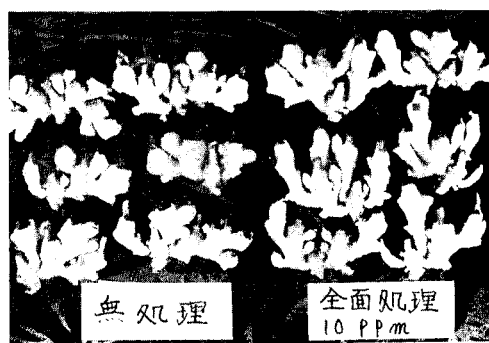 無処理
全面処理
10 ppm